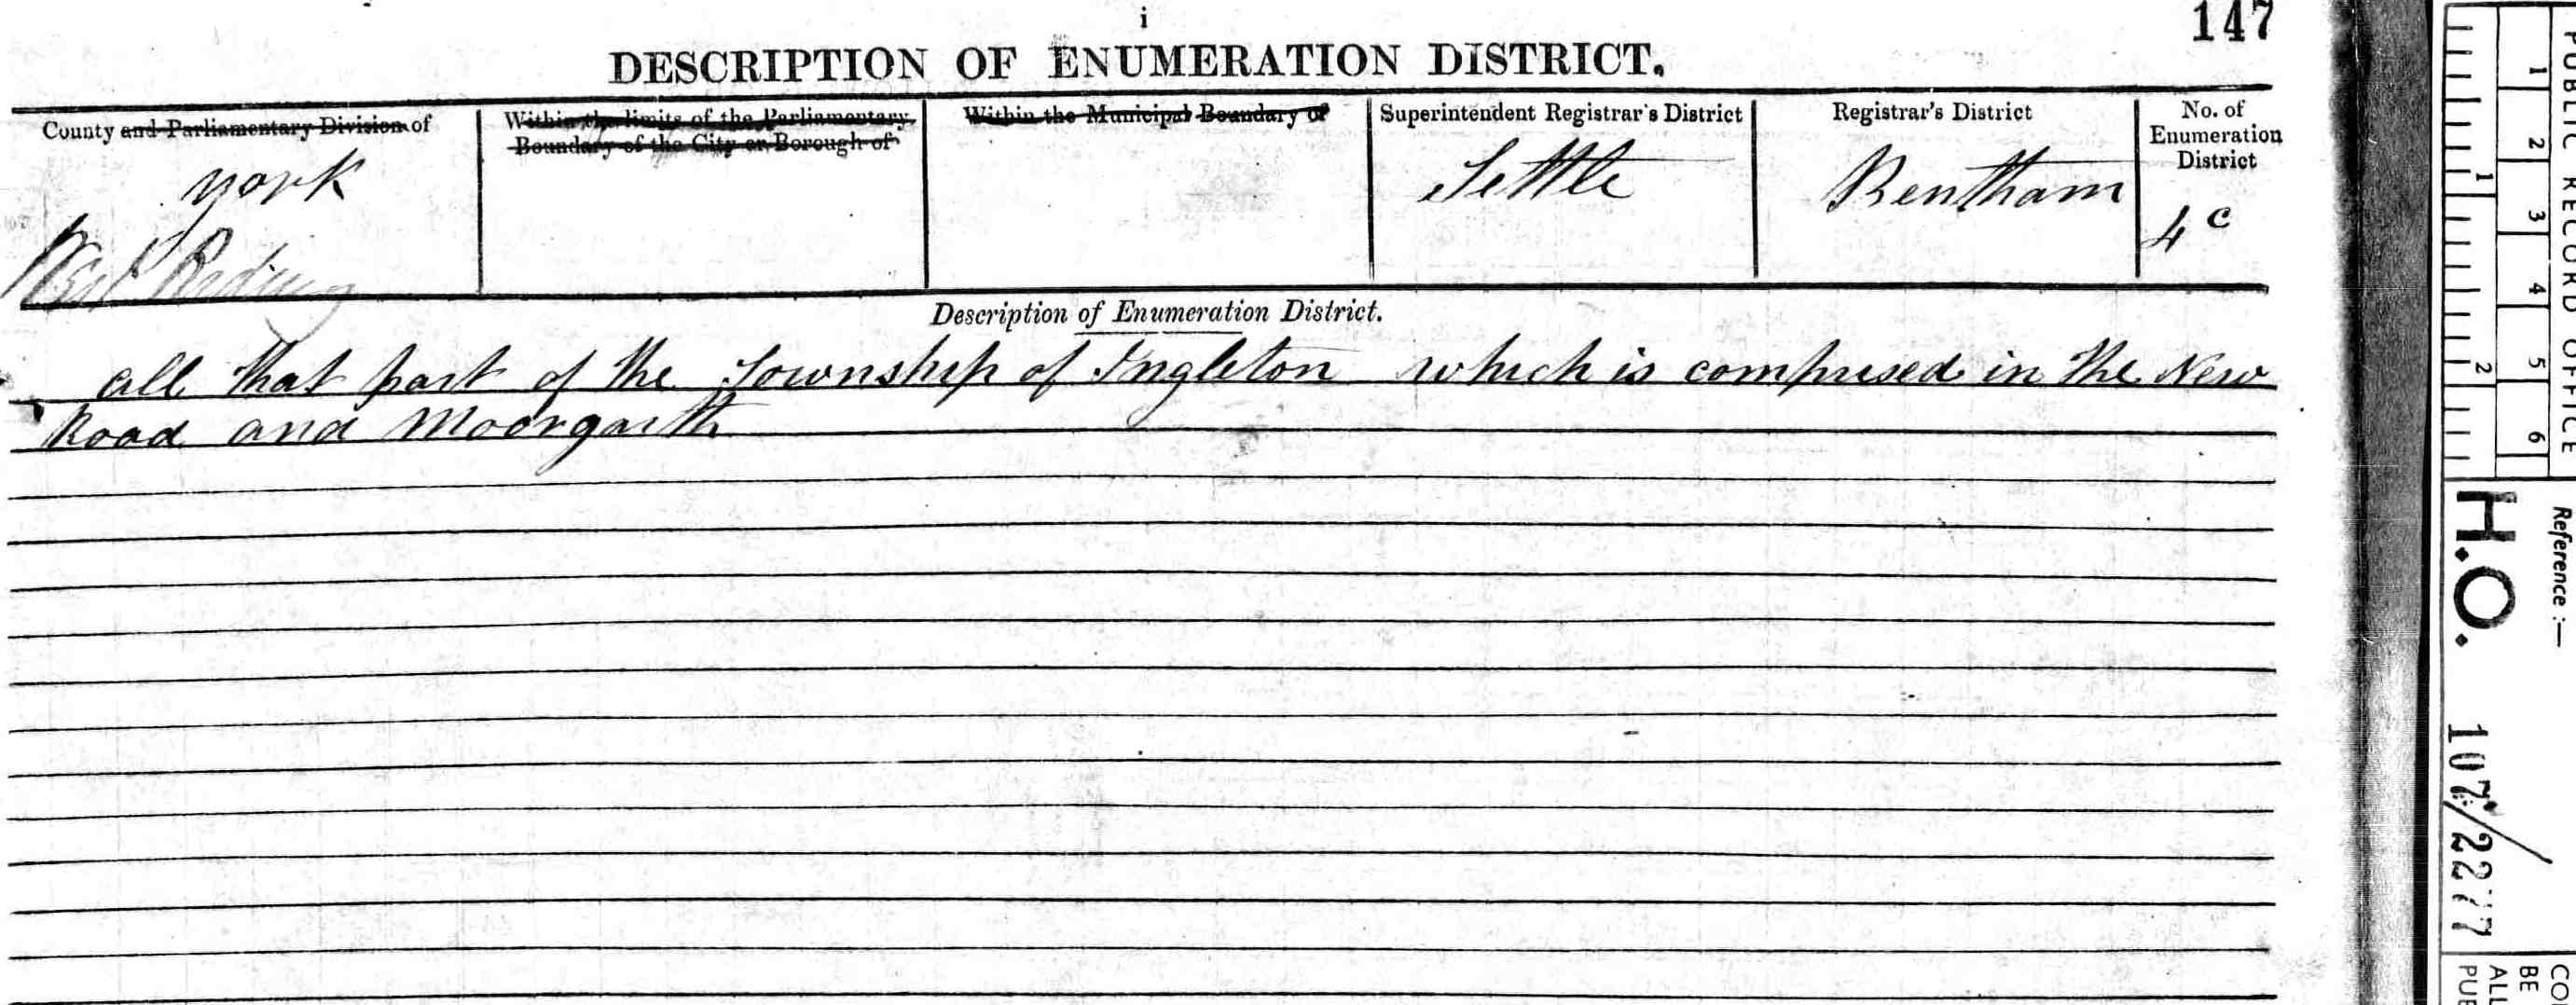 i
147
DESCRIPTION OF ENUMERATION DISTRICT.
County and Parliamentary Division of
York
West Riding
Within the limits of the Parliamentary
Boundary of the City or Borough of
Within the Municipal Boundary of
Superintendent Registrar's District
Settle
Registrar's District
Bentham
No. of
Enumeration
District
4c
Description of Enumeration District.
all that part of the Township of Ingleton which is comprised in the New
Road and Moorgarth
PUBLIC RECORD OFFICE
1 2 3 4 5 6
1 2
Reference :—
H.O. 107/2277
BE